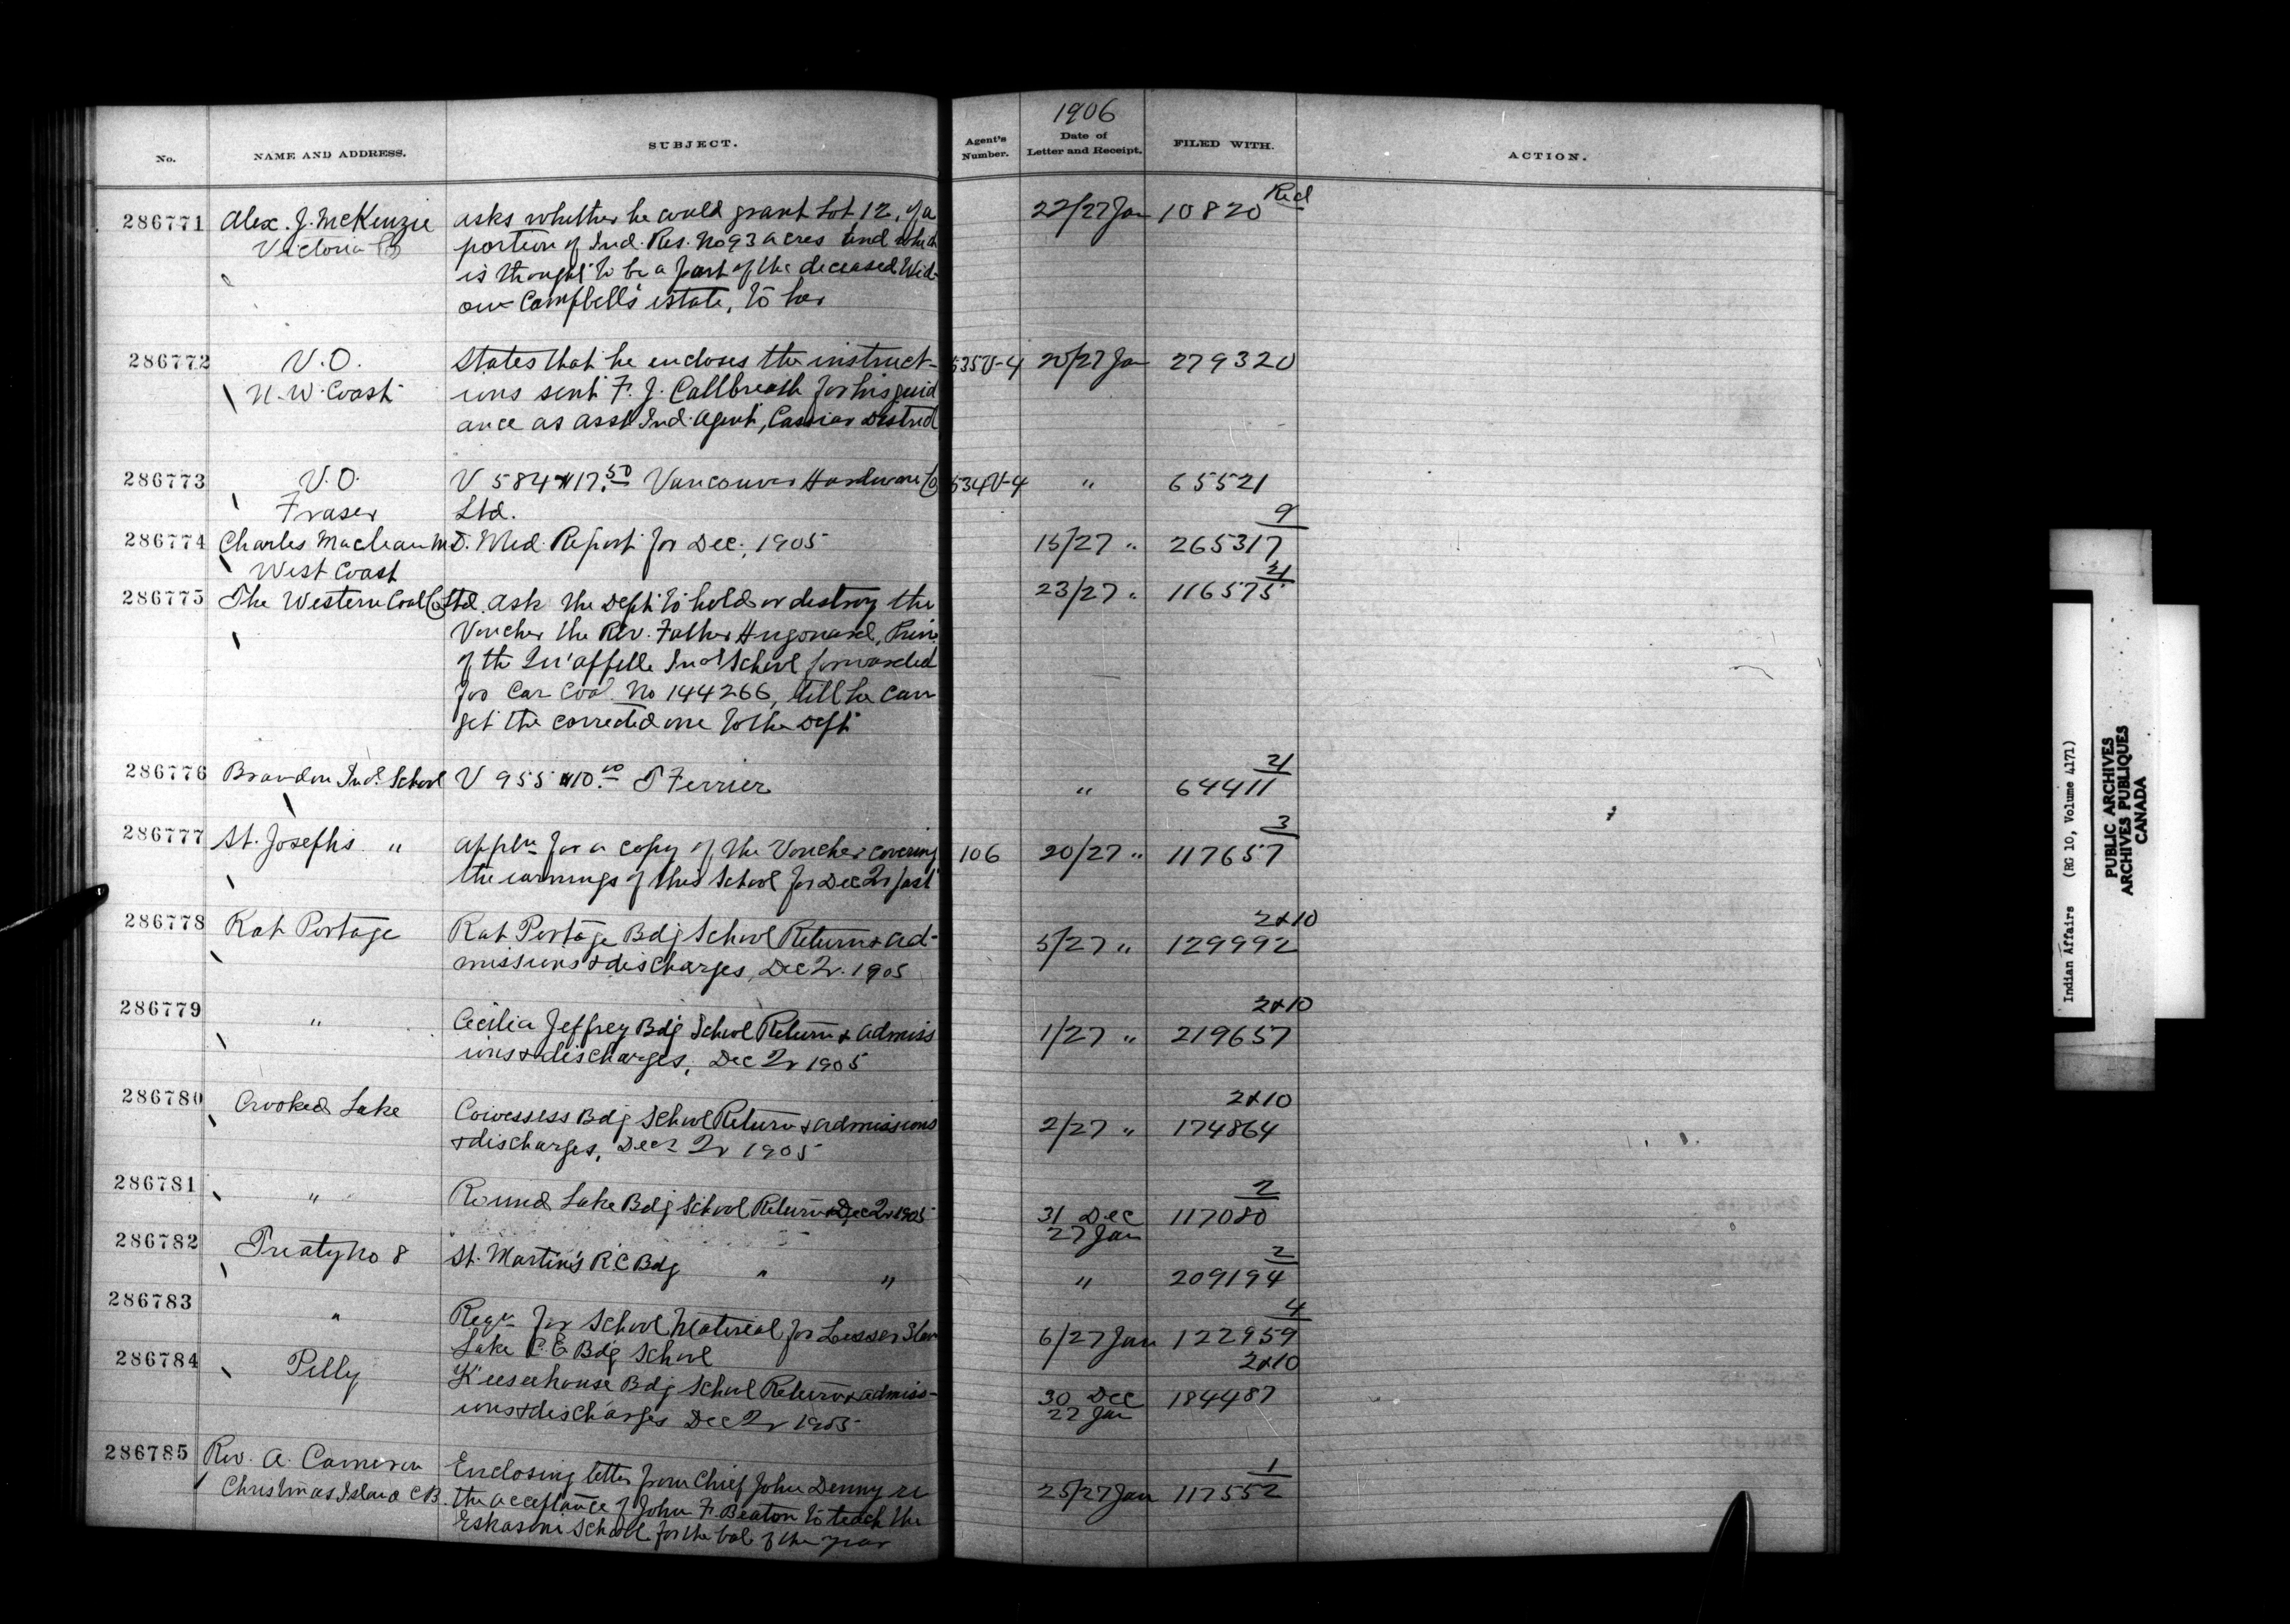 1906
No.
NAME AND ADDRESS.
SUBJECT.
Agent's Number.
Date of Letter and Receipt.
FILED WITH.
ACTION.
286771 Alex. J. McKenzie asks whether he could grant Lot 12, of a 22/27 Jan 10820 Red
Victoria portion of Ind. Res. No 93 acres and which
is thought to be a part of the deceased Wid-
ow Campbell's estate, to her
286772 V.O. States that he encloses the instruct- 535V-4 20/27 Jan 279320
N.W. Coast ions sent F. J. Callbreath for his guid
ance as asst Ind. Agent, Cassiar District
286773 V.O. V 584 $17.50 Vancouver Hardware Co 534V-4 " 65521
Fraser Ltd.
9
286774 Charles Maclean M.D. Med. Report for Dec., 1905 15/27 " 265317
West Coast
21
286775 The Western Coal Co Ltd. ask the Dept to hold or destroy the 23/27 " 116575
Voucher the Rev. Father Hugonard, Prin.
of the Qu'appelle Ind School forwarded
for Car Coal No 144266, till he can
get the corrected one to the Dept
21
286776 Brandon Ind. School V 955 $10.00 T Ferrier " 64411
3
286777 St. Joseph's " appln for a copy of the Voucher covering 106 20/27 " 117657
the earnings of this School for Dec Qr last
2&10
286778 Rat Portage Rat Portage Bdg School Return & ad- 5/27 " 129992
missions & discharges, Dec Qr. 1905
2&10
286779 " Cecilia Jeffrey Bdg School Return & admiss 1/27 " 219657
ions & discharges, Dec Qr 1905
2&10
286780 Crooked Lake Cowessess Bdg School Return & admissions 2/27 " 174864
& discharges, Decr Qr 1905
2
286781 " Round Lake Bdg School Return Dec Qr 1905 31 Dec 117080
27 Jan
2
286782 Treaty No 8 St. Martin's R.C Bdg " " " 209194
4
286783 " Reqn for School Material for Lesser Slave 6/27 Jan 122959
Lake C.E Bdg School
2&10
286784 Pelly Keeseehouse Bdg School Return & admiss- 30 Dec 184487
ions & discharges Dec Qr 1905 27 Jan
1
286785 Rev. A. Cameron Enclosing letter from Chief John Denny re 25/27 Jan 117552
Christmas Island C.B. the acceptance of John F. Beaton to teach the
Eskasoni School for the bal of the year
Indian Affairs (RG 10, Volume 4171)
PUBLIC ARCHIVES
ARCHIVES PUBLIQUES
CANADA